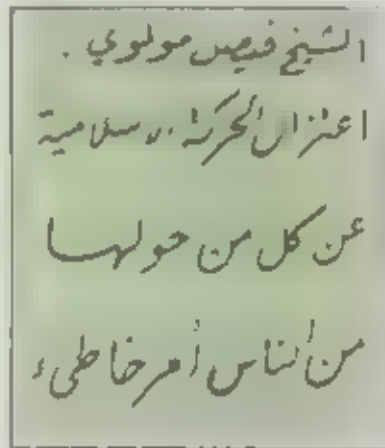 الشيخ فيصل مولوي .
اعتزال الحركة الاسلامية
عن كل من حولهـا
من الناس أمر خاطىء